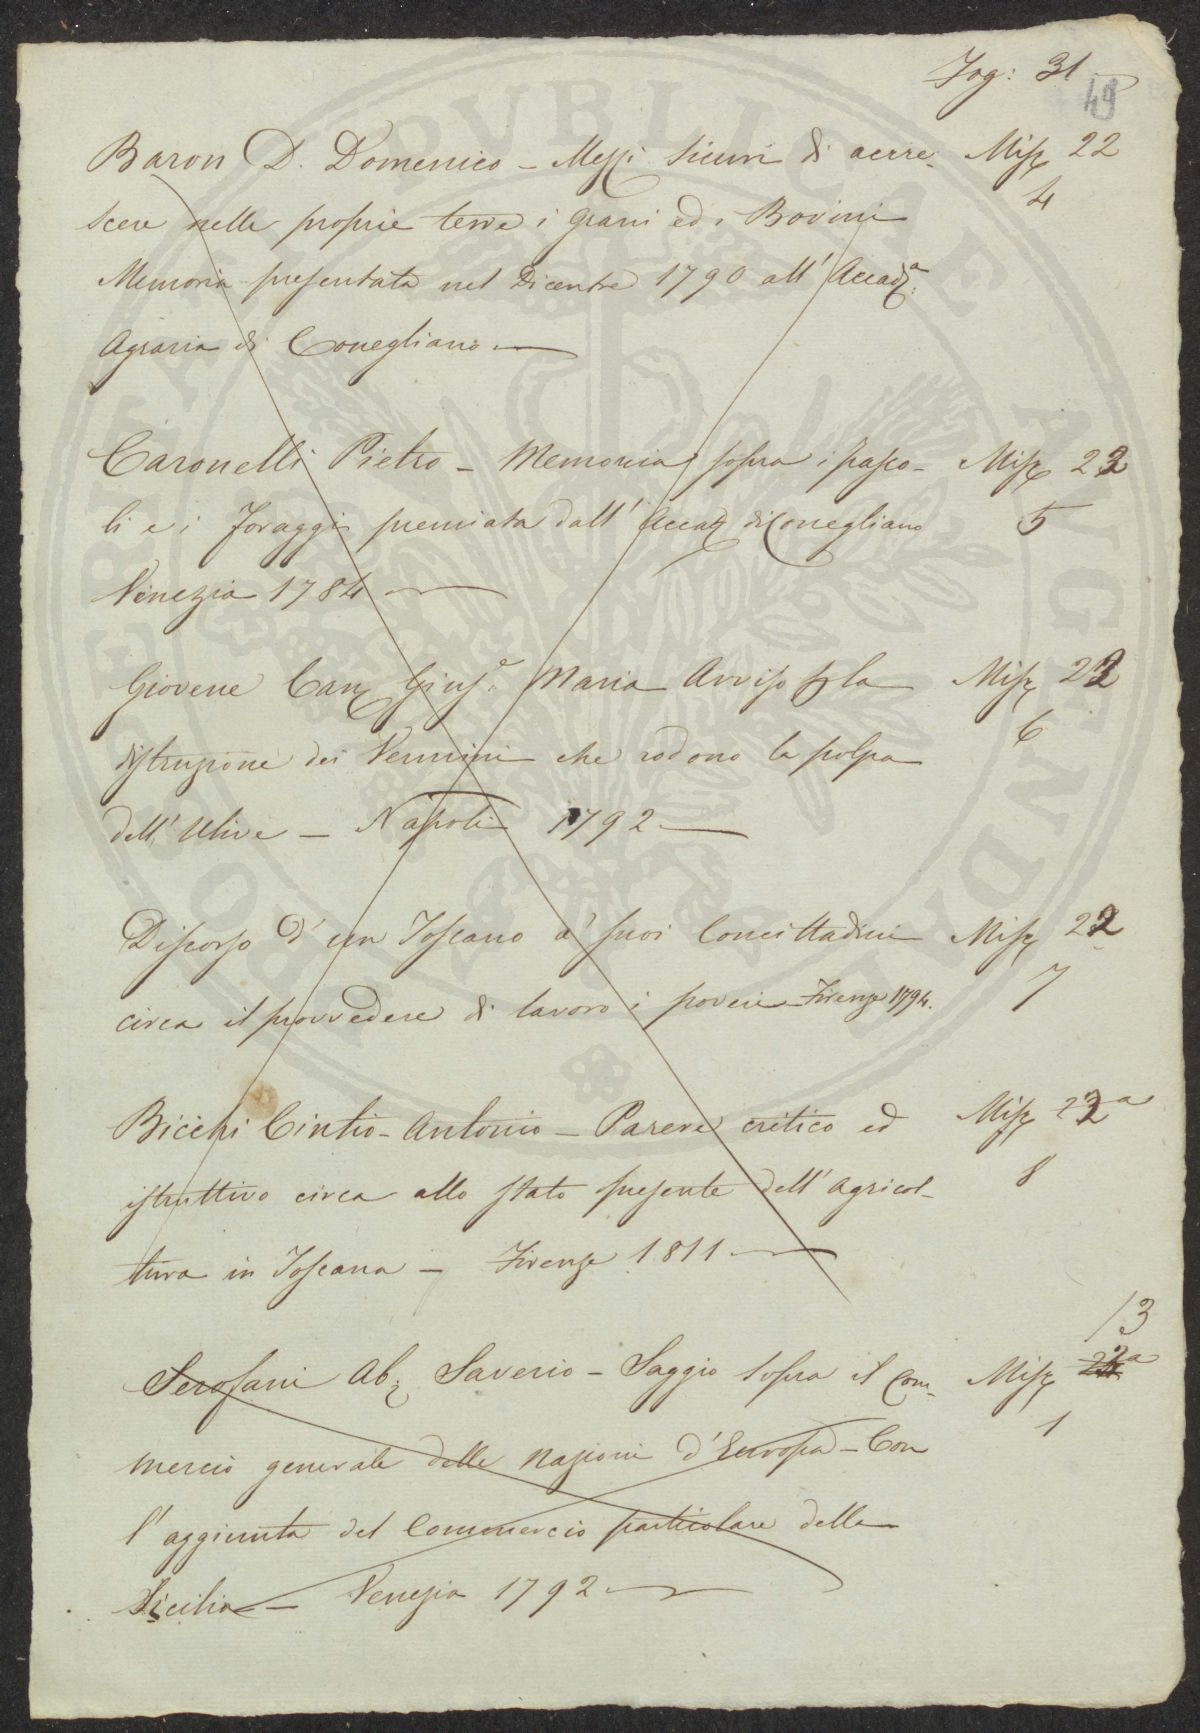 Fog: 31
49
Baron D. Domenico - Mezzi sicuri di accre- Misc 22
scere nelle proprie terre i grani ed i Bovini 4
Memoria presentata nel Dicembre 1790 all' Accad.a
Agraria di Conegliano
Caronelli Pietro - Memoria sopra i pasco- Misc 22
li e i Foraggi premiata dall' Accad di Conegliano 5
Venezia 1784
Giovene Can. Gius.e Maria Avviso p la Misc 22
distruzione dei Vermini che rodono la polpa 6
dell' Ulive - Napoli 1792
Discorso d' un Toscano a' suoi Concittadini Misc 22
circa il provvedere di lavoro i poveri - Firenze 1794. 7
Bicchi Cintio - Antonio - Parere critico ed Misc 22a
istruttivo circa allo stato presente dell' Agricol- 8
tura in Toscana - Firenze 1811
13
Scrofani Ab. Saverio - Saggio sopra il Com- Misc 22a
mercio generale delle Nazioni d' Europa - Con 1
l' aggiunta del Commercio particolare della
Sicilia - Venezia 1792
PUBLICAE AUGENDAE